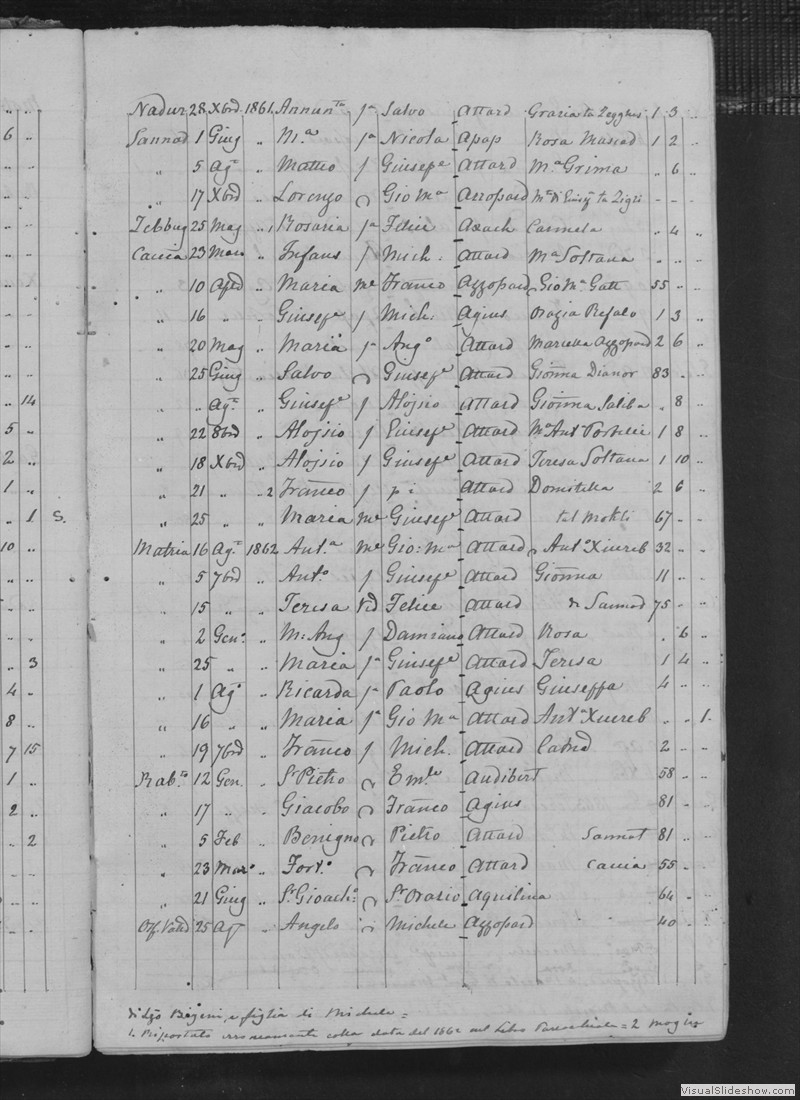 Nadur 28 Xbrē 1861 Annunta fa Salvo Attard Grazia ta 1 3 ..
Sannad 1 Giug .. Ma fa Nicola Apap Rosa Muscad 1 2 ..
6 .. .. 5 Ago .. Matteo f Giusepe Attard Ma Grima .. 6 ..
.. 17 Xbrē .. Lorenzo Gio Ma Azzopard Ma ta - - -
Zebbug 25 Mag .. 1 Rosaria fa Felice Axiach Carmela .. 4 ..
Caccia 23 Mar .. Infans f Mich. Attard Ma Soltana .. .. ..
.. 10 Apl .. Maria me Franco Azzopard Gio Ma Gatt 55 .. ..
.. 16 .. .. Giusepe f Mich. Agius Orazia Refalo 1 3 ..
.. 20 Mag .. Maria fa Ango Attard Mariella Azzopard 2 6 ..
.. 25 Giug .. Salvo Giusepe Attard Gionna Dianor 83 .. ..
14 .. .. Ago .. Giusepe f Alojsio Attard Gionna Saliba .. 8 ..
5 .. .. 22 8brē .. Alojsio f Giusepe Attard Ma Anta Portelli 1 8 ..
2 .. .. 18 Xbrē .. Alojsio f Giusepe Attard Teresa Soltana 1 10 ..
1 .. .. 21 .. .. 2 Franco f pi Attard Domitilla 2 6 ..
.. 1 S. .. 25 .. .. Maria me Giusepe Attard tal 67 .. ..
10 .. Matria 16 Ago 1862 Anta me Gio: Ma Attard Anto Xuereb 32 .. ..
.. 5 7brē .. Anto f Giusepe Attard Gionna 11 .. ..
.. 15 .. .. Teresa Vid Felice Attard di Sannad 75 .. ..
.. 2 Geno .. M: Ang f Damiano Attard Rosa .. 6 ..
.. 3 .. 25 .. .. Maria fa Giusepe Attard Teresa 1 4 ..
4 .. .. 1 Ago .. Ricarda fa Paolo Agius Giuseppa 4 .. ..
8 .. .. 16 .. .. Maria fa Gio Ma Attard Anta Xuereb .. .. 1.
7 15 .. 19 7brē .. Franco f Mich. Attard 2 .. ..
1 .. Rabto 12 Gen. .. Sr Pietro Emle Audibert 58 .. ..
2 .. .. 17 .. .. Giacobo Franco Agius 81 .. ..
.. 2 .. 5 Feb .. Benigno Pietro Attard Sannat 81 .. ..
.. 23 Maro .. Forto Franco Attard Caccia 55 .. ..
.. 21 Giug .. Sr Gioacho Sr Orazio Aquilina 64 .. ..
25 Ago .. Angelo Michele Azzopard 40 .. ..
figlia di Michele =
1. Rispostato erroneamente colla data del 1862 nel Libro Parochiale = 2 Moglie
VisualSlideshow.com